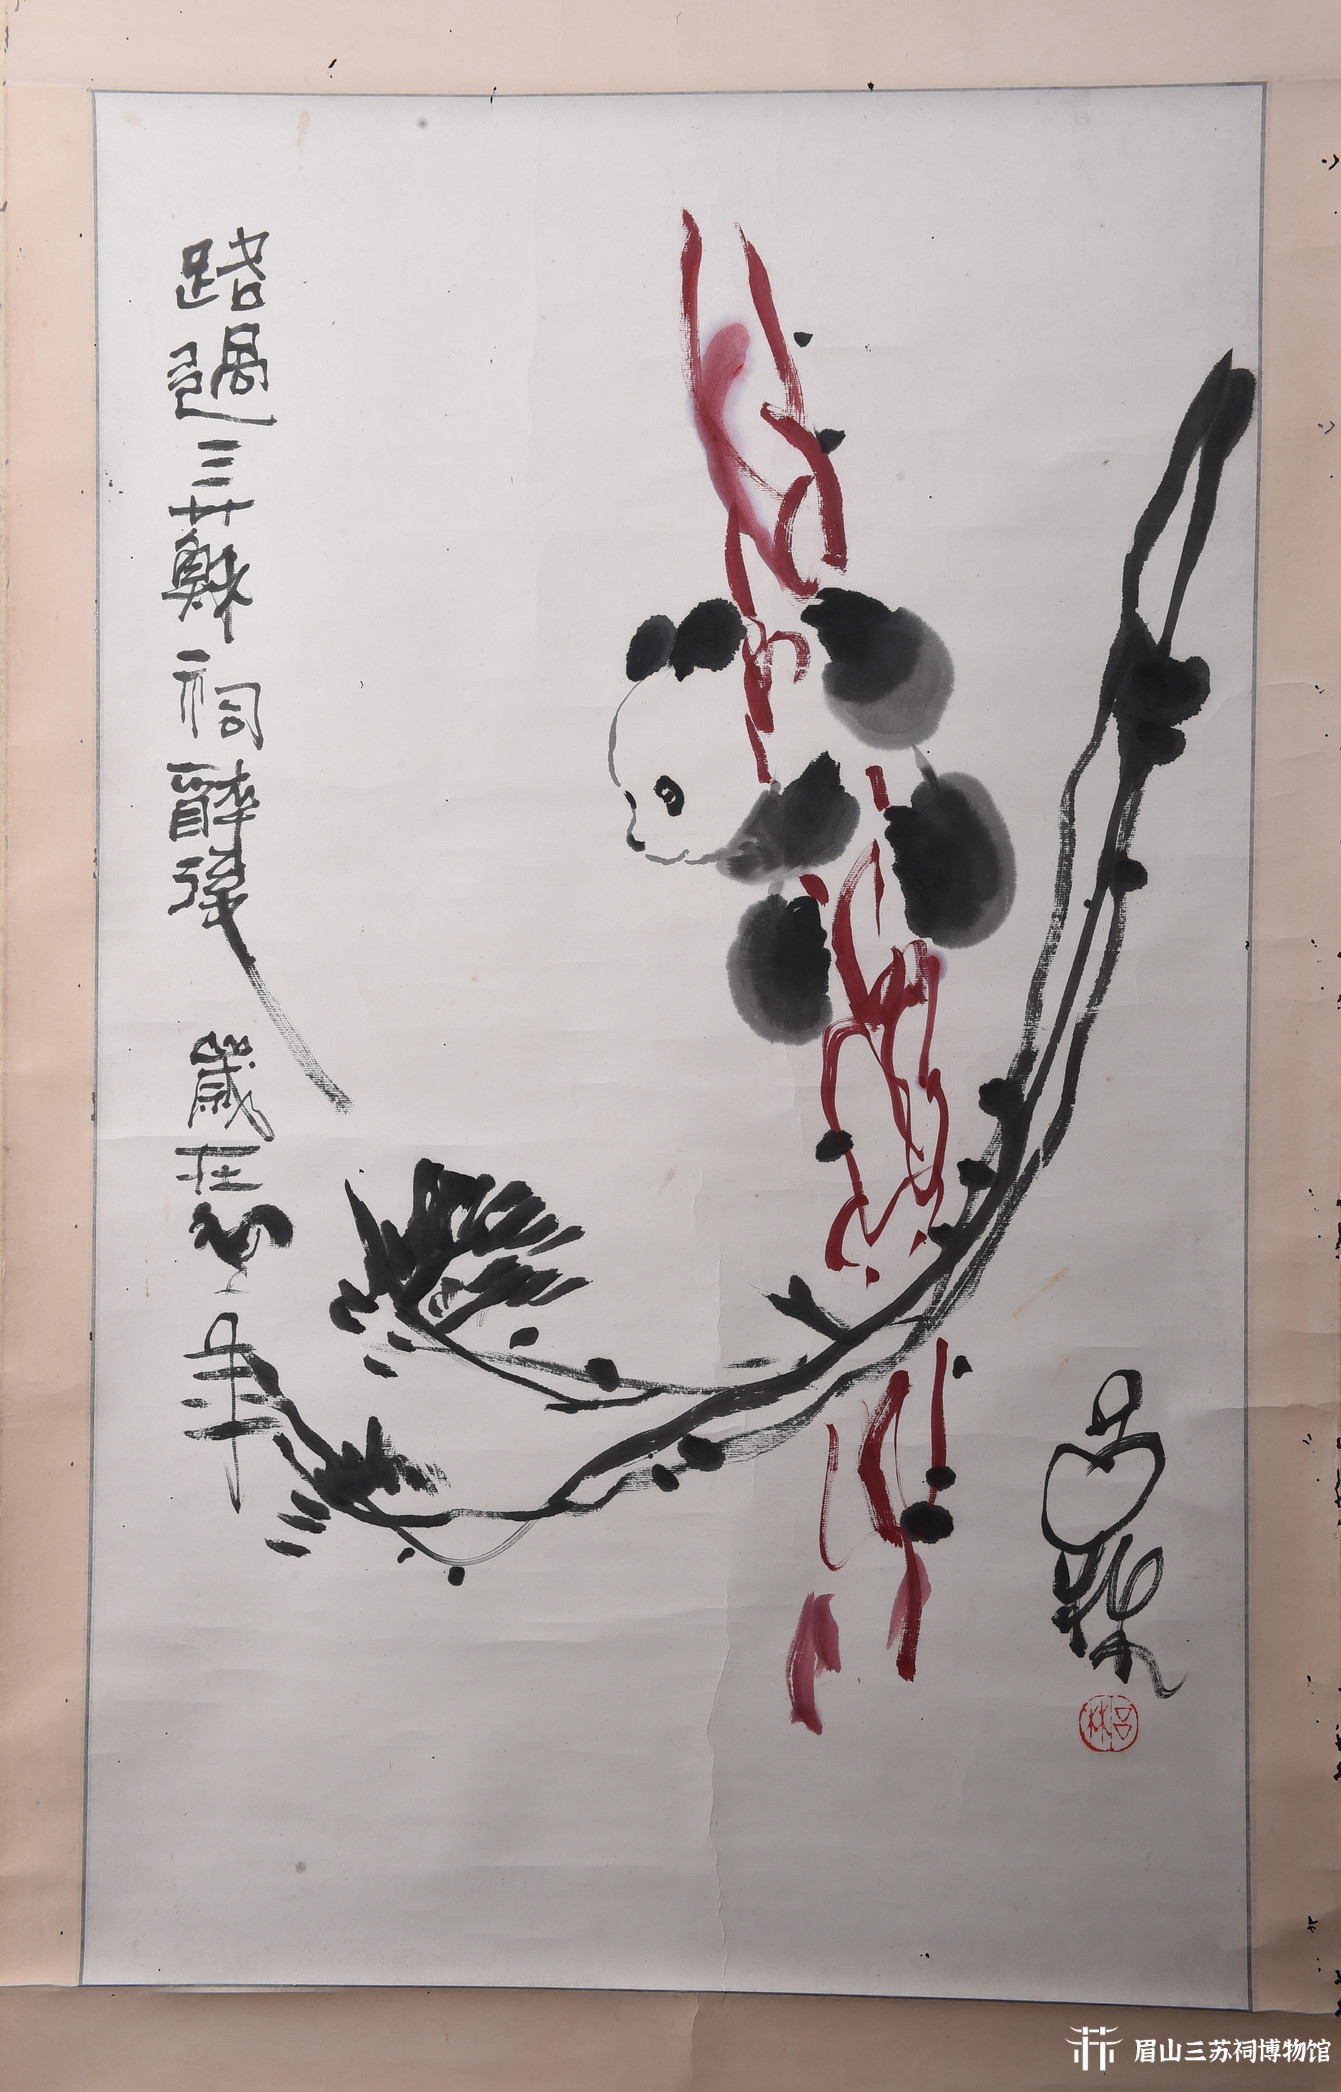 路過三蘇祠醉後 歲在年
呂林
呂林
眉山三苏祠博物馆